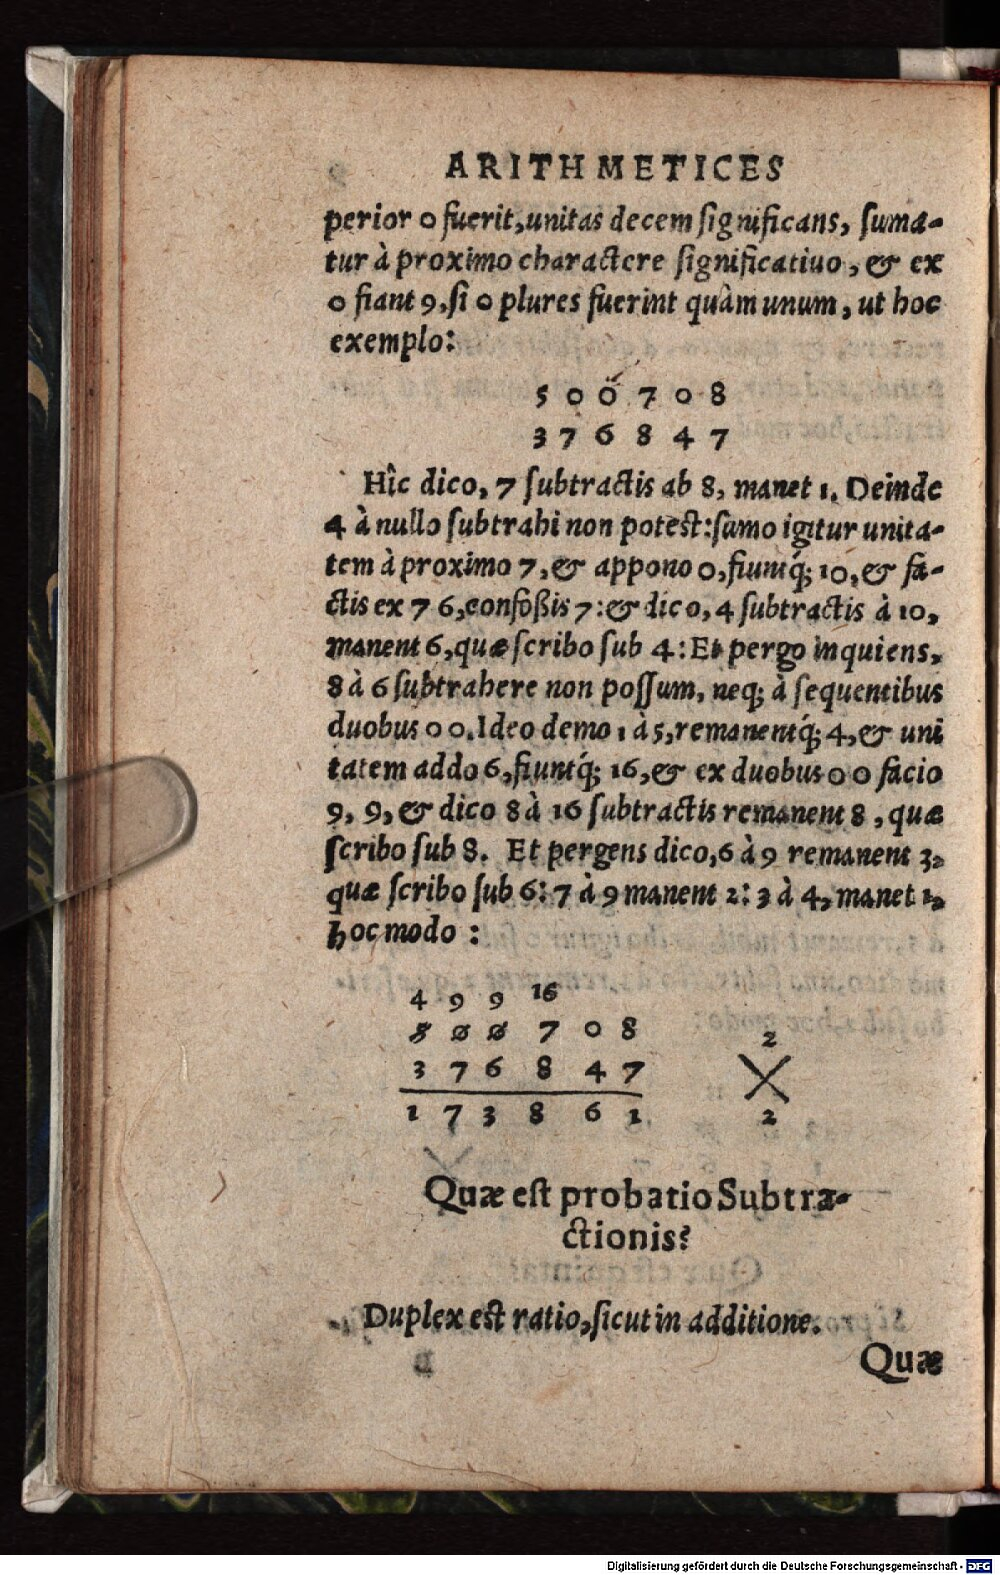 ARITHMETICES
perior 0 fuerit, unitas decem ſignificans, ſuma-
tur à proximo charactere ſignificatiuo, & ex
0 fiant 9, ſi 0 plures fuerint quàm unum, ut hoc
exemplo:
5 0 0 7 0 8
3 7 6 8 4 7
Hîc dico, 7 ſubtractis ab 8, manet 1. Deinde
4 à nullo ſubtrahi non poteſt: ſumo igitur unita-
tem à proximo 7, & appono 0, fiuntq́; 10, & fa-
ctis ex 7 6, confoßis 7: & dico, 4 ſubtractis à 10,
manent 6, quæ ſcribo ſub 4: Et pergo inquiens,
8 à 6 ſubtrahere non poſſum, neq; à ſequentibus
duobus 0 0. Ideo demo 1 à 5, remanentq́; 4, & uni
tatem addo 6, fiuntq́; 16, & ex duobus 0 0 facio
9, 9, & dico 8 à 16 ſubtractis remanent 8, quæ
ſcribo ſub 8. Et pergens dico, 6 à 9 remanent 3,
quæ ſcribo ſub 6: 7 à 9 manent 2: 3 à 4, manet 1,
hoc modo:
4 9 9 16
5 0 0 7 0 8 2
3 7 6 8 4 7
1 7 3 8 6 1 2
Quæ eſt probatio Subtra-
ctionis?
Duplex eſt ratio, ſicut in additione.
Quæ
Digitalisierung gefördert durch die Deutsche Forschungsgemeinschaft - DFG